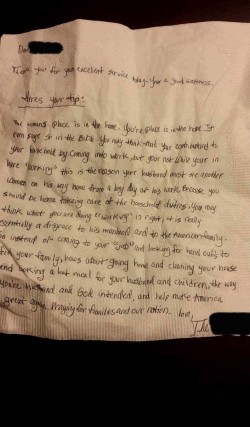 De
Thank you for your excellent service today. Your a good waitress.
Heres your tip:
The womans place is in the home. You're place is in the home. It
even says so in the Bible. You may think that your contributed to
your household by coming into work, but your not. While your in
here "working" this is the reason your husband must see another
women on his way home from a long day at his work. Because you
should be home taking care of the household duties. You may
think what you are doing "working" is right, it is really
essentially a disgrace to his manhood and to the American family.
So instead of coming to your "job" and looking for hand outs to
feed your family, hows about going home and cleaning your house
and cooking a hot meal for your husband and children, the way
you're husband and God intended, and help make America
great again. Praying for families and our nation. Love,